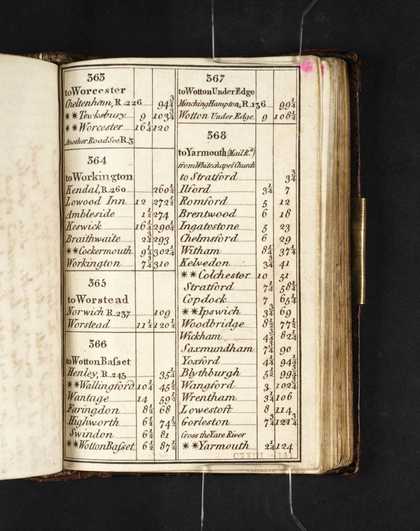 363
to Worcester
Cheltenham, R.226 94¾
**Tewksbury 9 103¾
**Worcester 16¼ 120
Another Road See R.3
364
to Workington
Kendal, R.260 260½
Lowood Inn 12 272½
Ambleside 1½ 274
Keswick 16¼ 290¼
Braithwaite 2¾ 293
**Cockermouth 9¼ 302¼
Workington 7¾ 310
365
to Worstead
Norwich R.237 109
Worstead 11½ 120½
366
to Wotton Basset
Henley, R.245 35¼
**Wallingford 10¼ 45½
Wantage 14 59½
Faringdon 8½ 68
Highworth 6½ 74½
Swindon 6½ 81
**Wotton Basset 6½ 87½
367
to Wotton Under Edge
Minching Hampton, R.136 99¼
Wotton Under Edge 9 108¼
368
to Yarmouth (Mail Rd.)
from Whitechapel Church
to Stratford 3¾
Ilford 3¼ 7
Romford 5 12
Brentwood 6 18
Ingatestone 5 23
Chelmsford 6 29
Witham 8½ 37½
Kelvedon 3¾ 41
**Colchester 10 51
Stratford 7½ 58½
Copdock 7
**Ipswich 69
Woodbridge 8½ 77½
Wickham
Saxmundham 90
Yoxford
Blythburgh
Wangford 3
Wrentham 3¾ 106
Lowestoft 8 114
Gorleston
Cross the Yare River
**Yarmouth 124